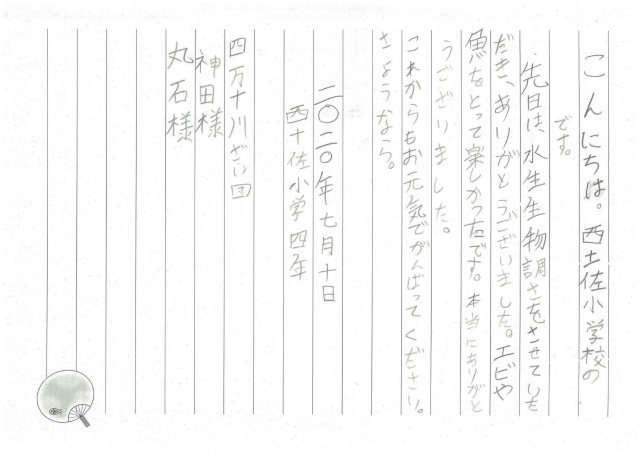 こんにちは。西土佐小学校の
です。
先日は、水生生物調さをさせていた
だき、ありがとうございました。エビや
魚をとって楽しかったです。本当にありがと
うございました。
これからもお元気でがんばってください。
さようなら。
二〇二〇年七月十日
西土佐小学四年
四万十川ざい団
神田様
丸石様